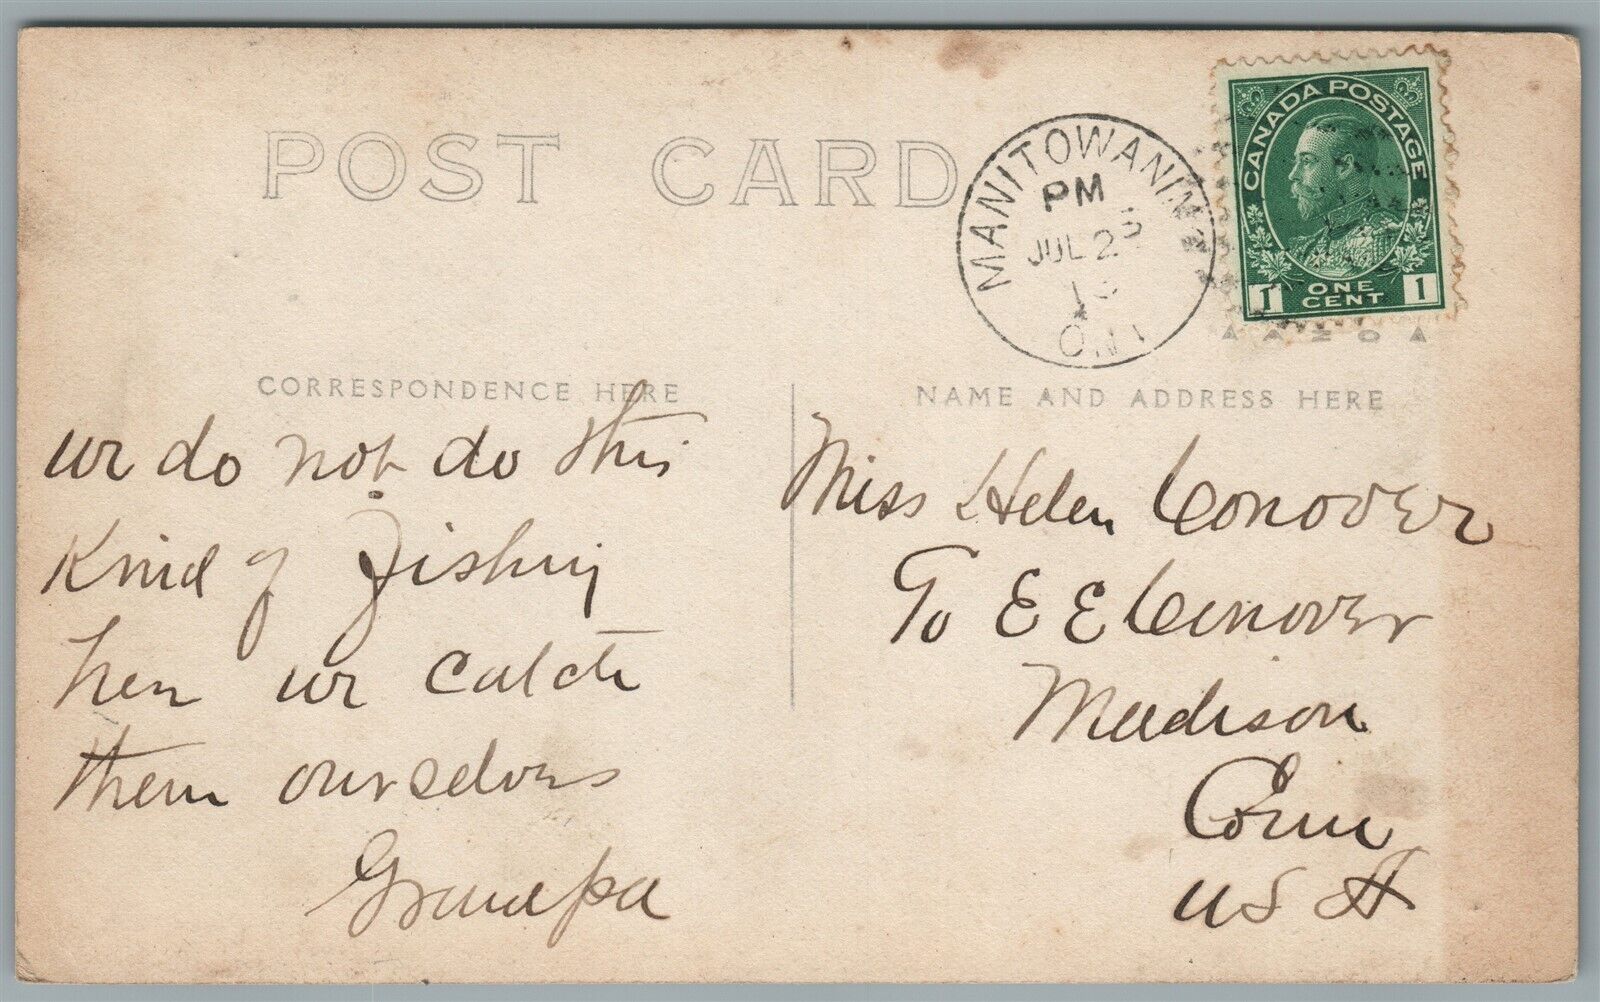 POST CARD
MANITOWANING
PM
JUL 25
ONT
CANADA POSTAGE
1 ONE CENT 1
AZO
CORRESPONDENCE HERE
NAME AND ADDRESS HERE
we do not do this
Kind of Fishing
her we catch
them ourselves
Grandpa
Miss Helen Conover
To E E Conover
Madison
Conn
U S A